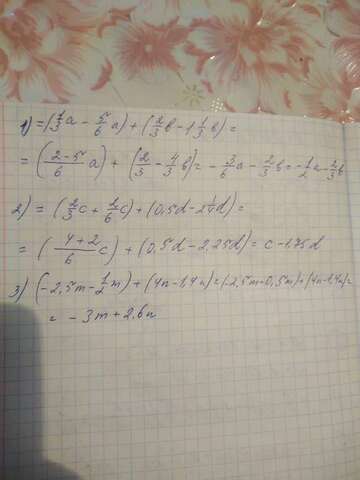 1) = (1/3 a - 5/6 a) + (2/3 b - 1 1/3 b) =
= (2-5/6 a) + (2/3 - 4/3 b) = - 3/6 a - 2/3 b = - 1/2 a - 2/3 b
2) = (2/3 c + 2/6 c) + (0,5d - 2 1/4 d) =
= (4+2/6 c) + (0,5d - 2,25d) = c - 1,75d
3) (-2,5m - 1/2 m) + (4n - 1,4n) = (-2,5m - 0,5m) + (4n - 1,4n) =
= - 3m + 2,6n